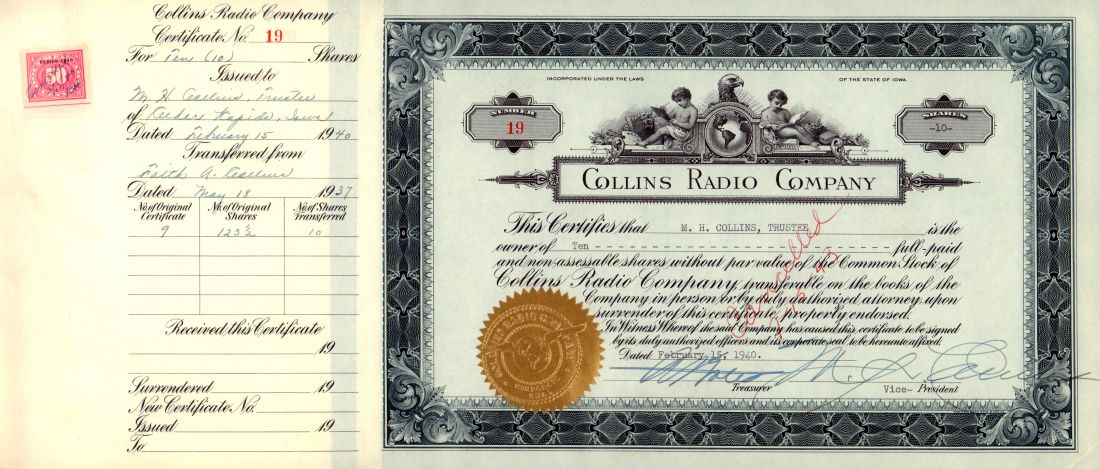 Collins Radio Company
Certificate No. 19
For Ten (10) Shares
Issued to
M. H. Collins, Trustee
of Cedar Rapids, Iowa
Dated February 15 1940
Transferred from
Faith A. Collins
Dated May 18 1937
No. of Original Certificate
No. of Original Shares
No. of Shares Transferred
9 123½ 10
Received this Certificate
19
Surrendered 19
New Certificate No.
Issued 19
To
SERIES 1940
50
INCORPORATED UNDER THE LAWS OF THE STATE OF IOWA
NUMBER
19
SHARES
-10-
COLLINS RADIO COMPANY
This Certifies that M. H. COLLINS, TRUSTEE is the
owner of Ten - - - - - - - - - - - - - - - - - - - - - - - full-paid
and non-assessable shares without par value of the Common Stock of
Collins Radio Company, transferable on the books of the
Company in person or by duly authorized attorney upon
surrender of this certificate properly endorsed.
In Witness Whereof the said Company has caused this certificate to be signed
by its duly authorized officers and its corporate seal to be hereunto affixed.
Dated February 15, 1940.
Treasurer
Vice- President
Cancelled